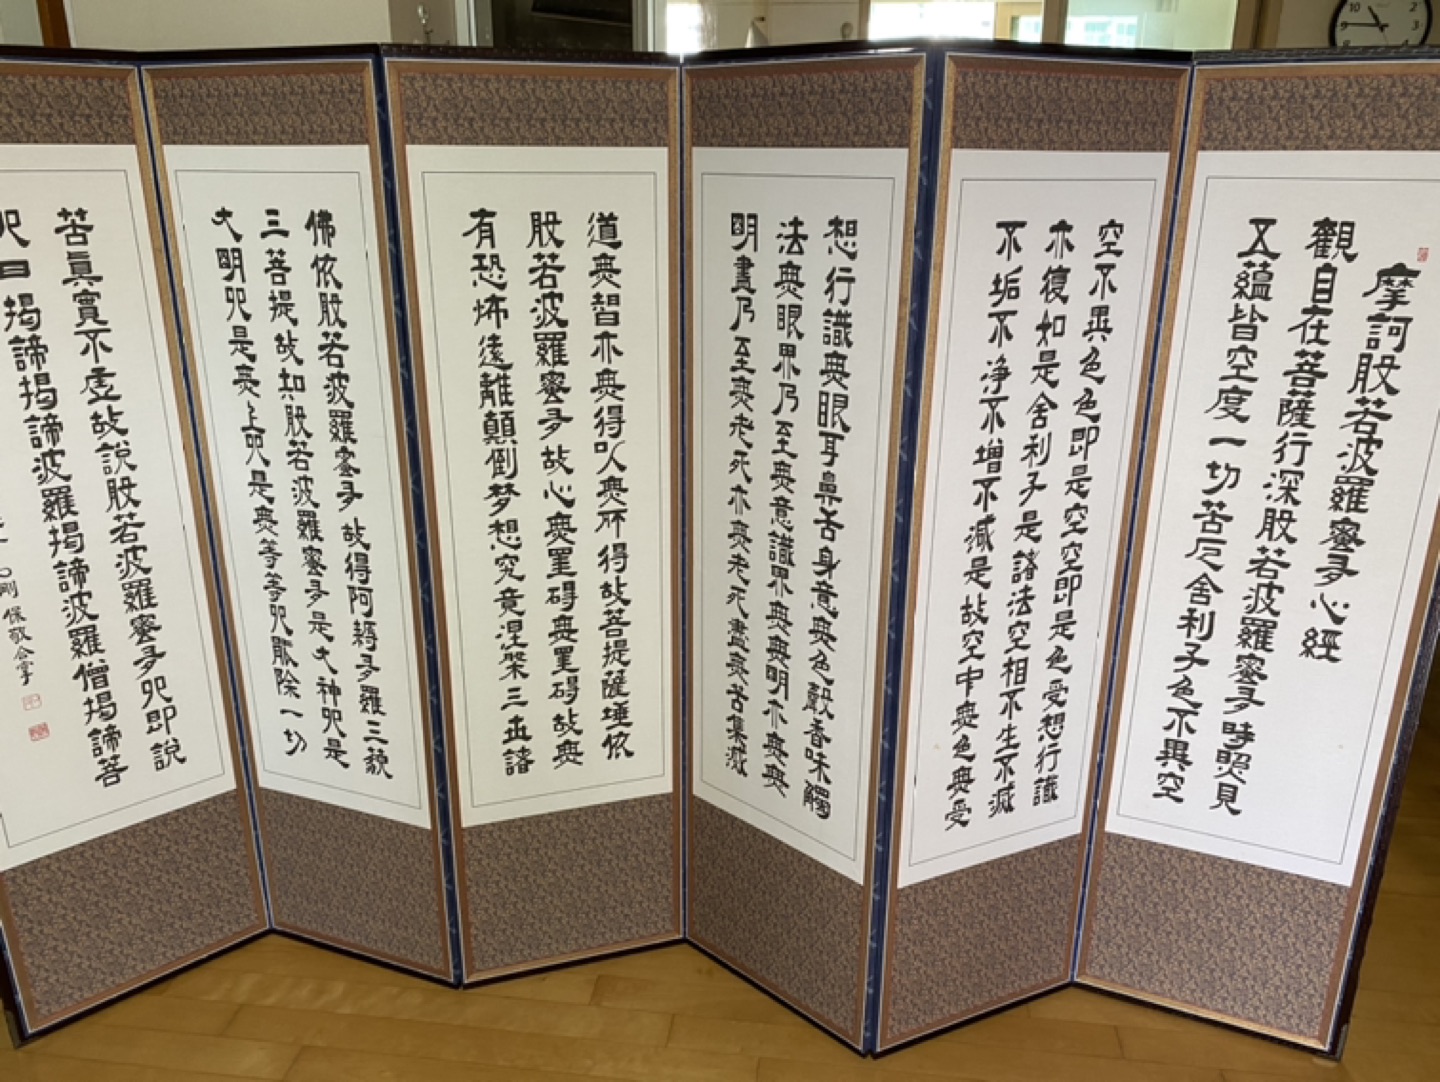 摩訶般若波羅蜜多心經
觀自在菩薩行深般若波羅蜜多時照見
五蘊皆空度一切苦厄舍利子色不異空
空不異色色即是空空即是色受想行識
亦復如是舍利子是諸法空相不生不滅
不垢不淨不增不減是故空中無色無受
想行識無眼耳鼻舌身意無色聲香味觸
法無眼界乃至無意識界無無明亦無無
明盡乃至無老死亦無老死盡無苦集滅
道無智亦無得以無所得故菩提薩埵依
般若波羅蜜多故心無罣碍無罣碍故無
有恐怖遠離顛倒梦想究竟涅槃三世諸
佛依般若波羅蜜多故得阿耨多羅三藐
三菩提故知般若波羅蜜多是大神呪是
大明呪是無上呪是無等等呪能除一切
苦眞實不虛故說般若波羅蜜多呪即說
呪曰揭諦揭諦波羅揭諦波羅僧揭諦菩
剛保敬合掌